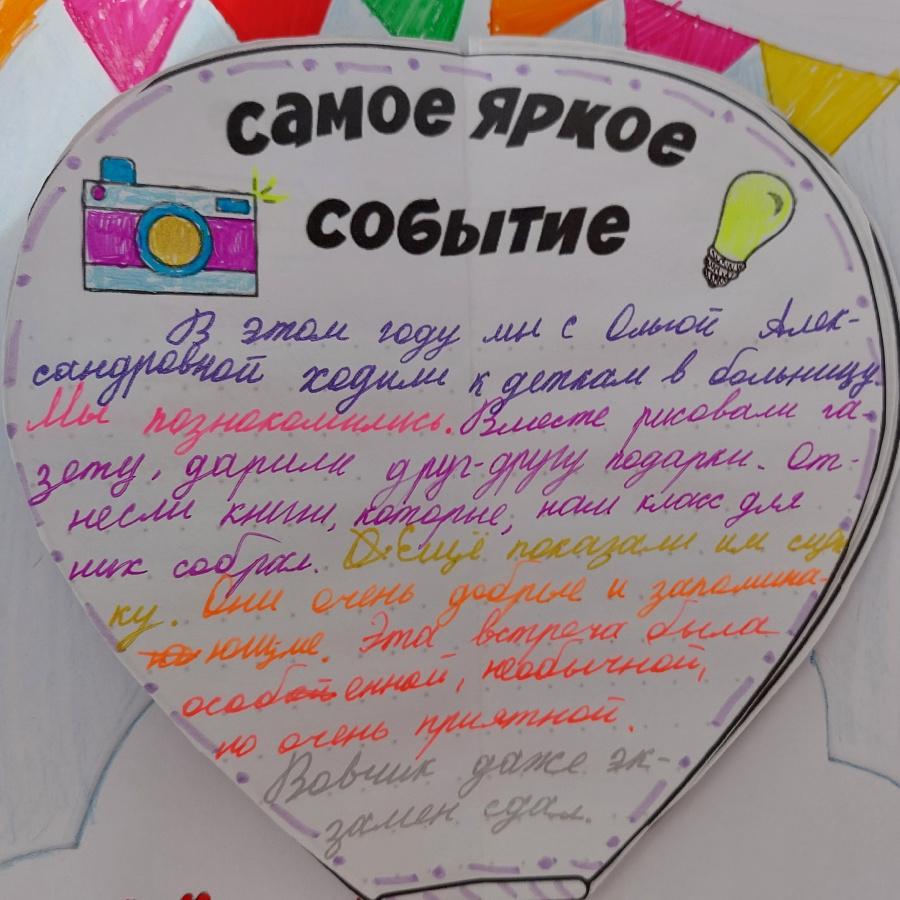 самое яркое
событие
В этом году мы с Ольгой Алек-
сандровной ходили к деткам в больницу.
Мы познакомились. Вместе рисовали га-
зету, дарили друг-другу подарки. От-
несли книги, которые, наш класс для
них собрал. Ещё показали им сцен
ку. Они очень добрые и запомина-
ющие. Эта встреча была
особенной, необычной,
но очень приятной.
Вовчик даже эк-
замен сдал.